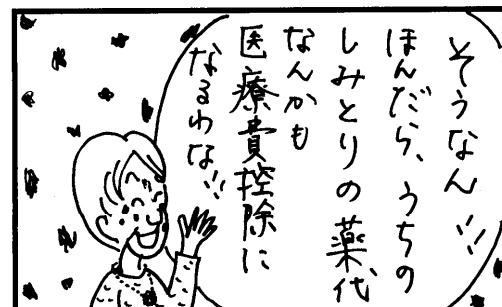 そうなん!!
ほんだら、うちの
しみとりの薬代
なんかも
医療費控除に
なるわな!!